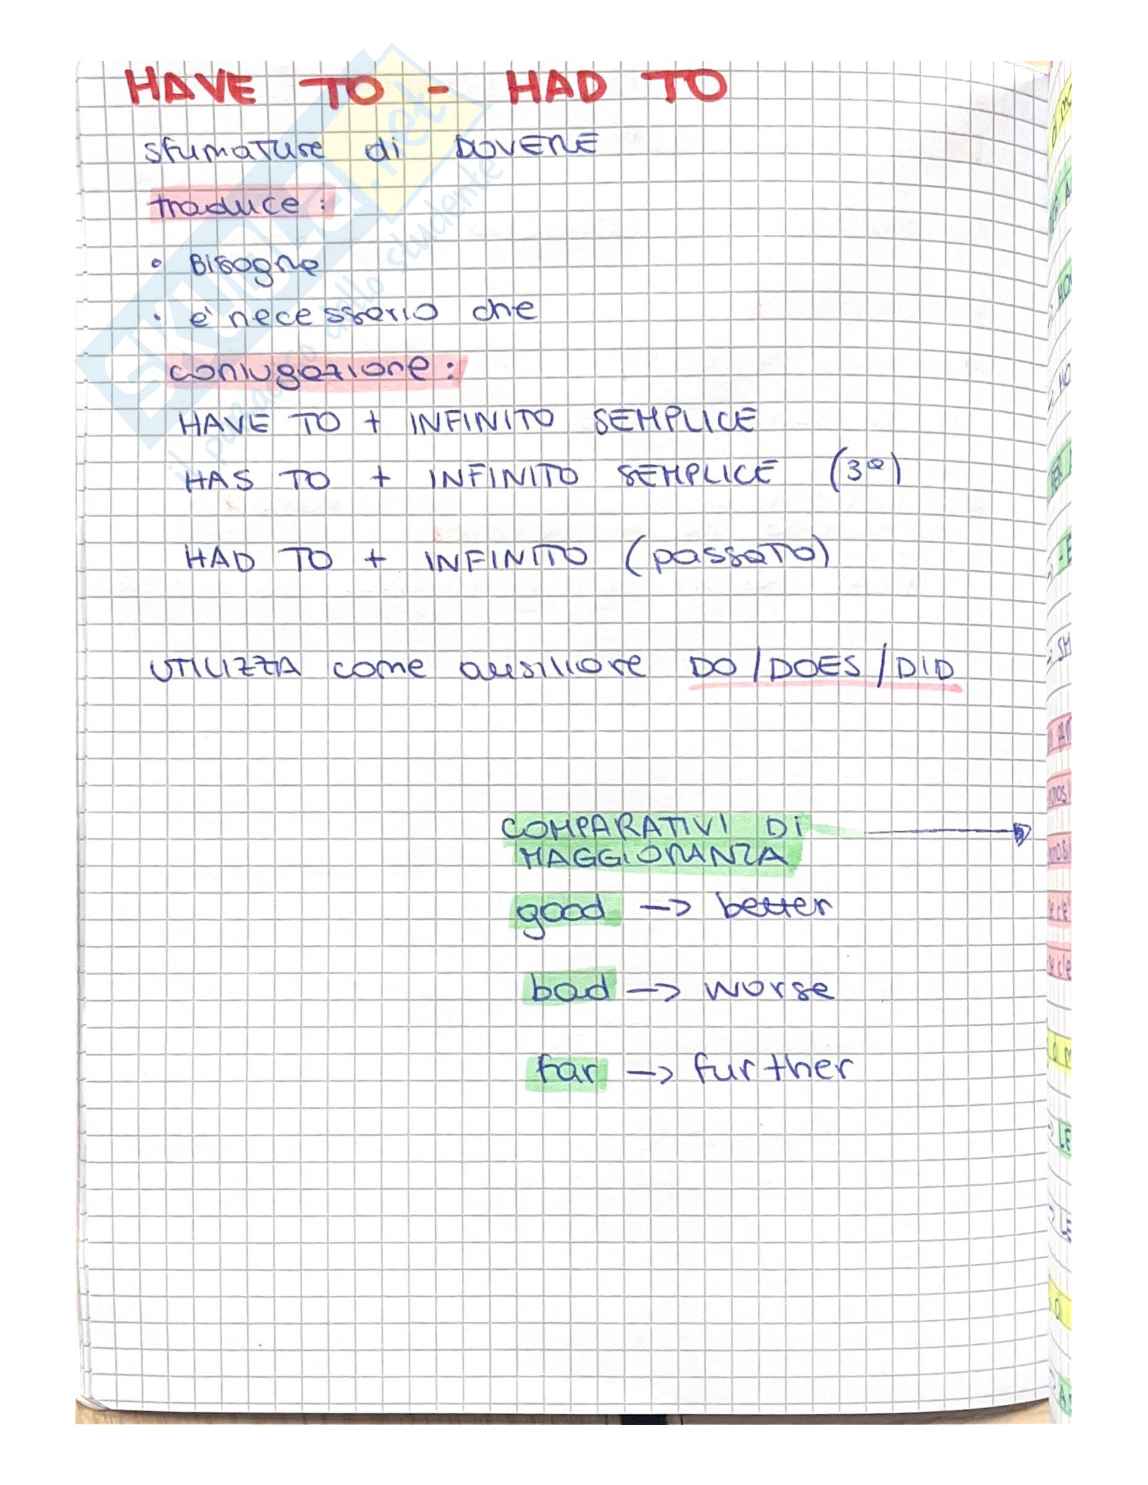 HAVE TO - HAD TO
sfumature di DOVERE
traduce:
• Bisogna
• è necessario che
coniugazione:
HAVE TO + INFINITO SEMPLICE
HAS TO + INFINITO SEMPLICE (3ª)
HAD TO + INFINITO (passato)
UTILIZZA come ausiliare DO/DOES/DID
COMPARATIVI Di
MAGGIORANZA
good -> better
bad -> worse
far -> further